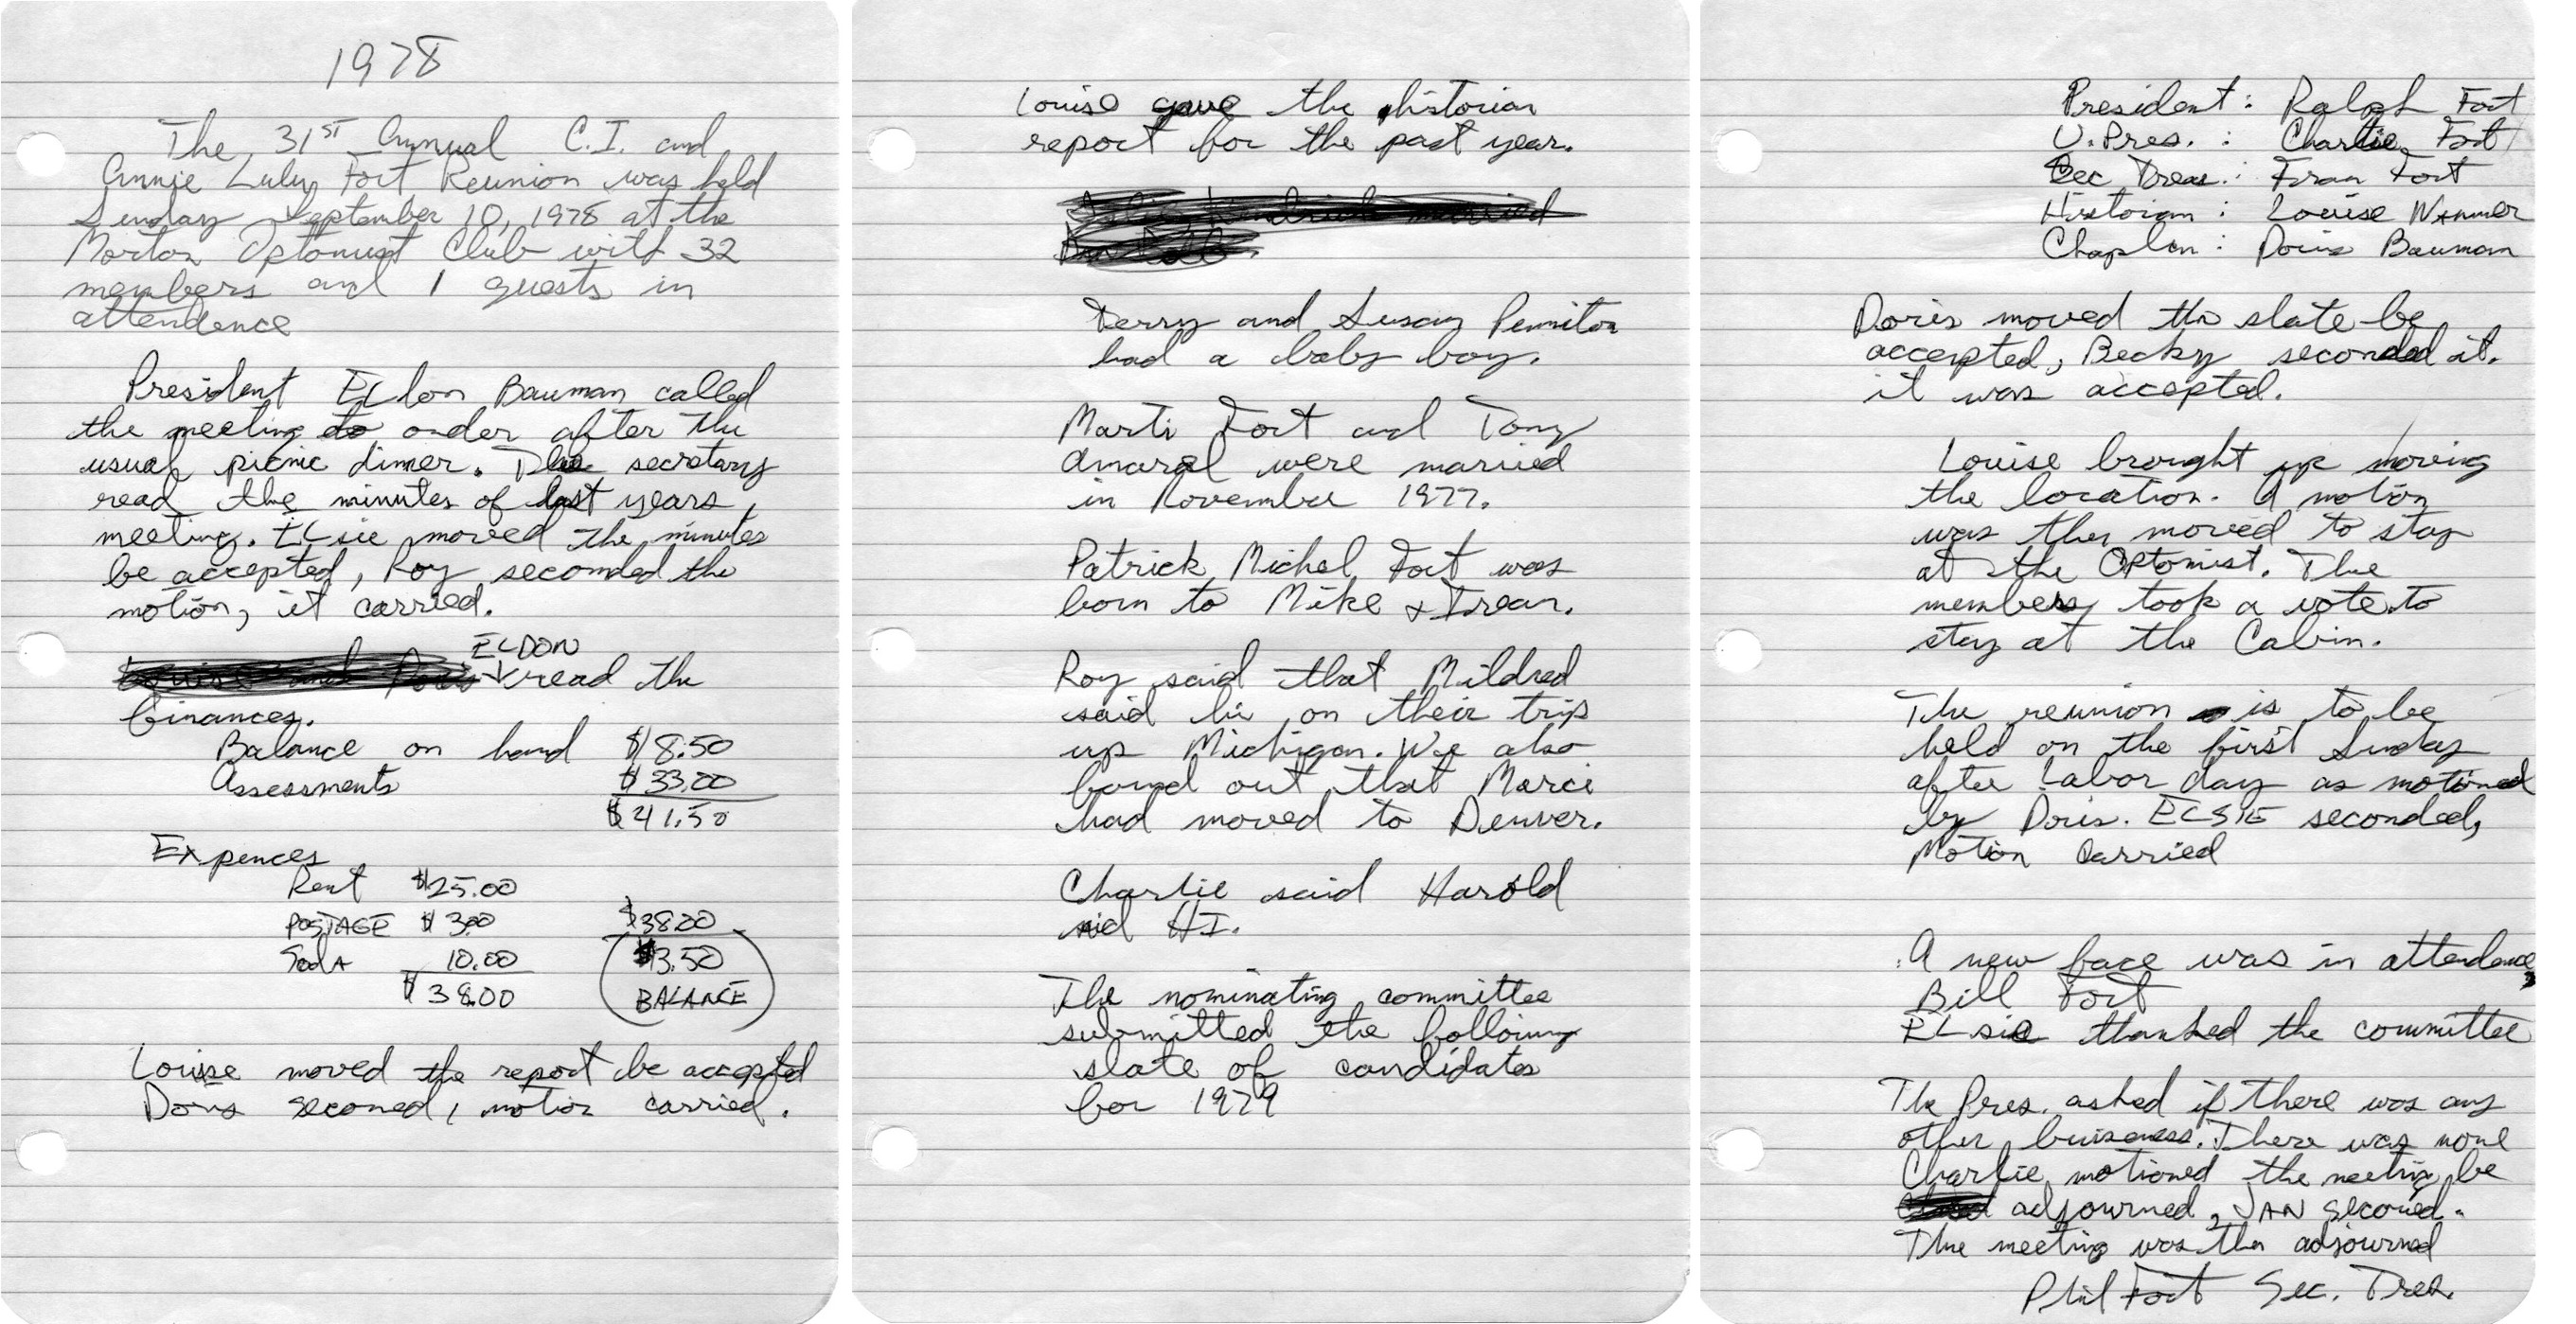 1978
The 31ST Annual C.I. and
Annie Lulu Fort Reunion was held
Sunday September 10, 1978 at the
Morton Optomist Club with 32
members and 1 guests in
attendence
President ELdon Bauman called
the meeting to order after the
usual picnic dinner. The secretary
read the minutes of last years
meeting. ELsie moved the minutes
be accepted, Roy seconded the
motion, it carried.
ELDON
read the
finances.
Balance on hand $8.50
Assessments $33.00
$41.50
Expences
Rent $25.00
POSTAGE $3.00 $38.00
SodA 10.00 $3.50
$38.00 BALANCE
Louise moved the report be accepted
Doris seconed, motion carried.
Louise gave the historian
report for the past year.
Terry and Susan Penniton
had a baby boy.
Marti Fort and Tony
Amaral were married
in November 1977.
Patrick Michel Fort was
born to Mike & Fran.
Roy said that Mildred
said hi on their trip
up Michigan. We also
found out that Marci
had moved to Denver.
Charlie said Harold
said HI.
The nominating committee
submitted the following
slate of candidates
for 1979
President: Ralph Fort
V. Pres. : Charlie Fort
Sec Treas.: Fran Fort
Historian : Louise Wanner
Chaplin : Doris Bauman
Doris moved the slate be
accepted, Becky seconded it.
it was accepted.
Louise brought up moving
the location. A motion
was then moved to stay
at the Optomist. The
members took a vote to
stay at the Cabin.
The reunion is to be
held on the first Sunday
after Labor day as motioned
by Doris. ELSIE seconded,
Motion Carried
A new face was in attendence,
Bill Fort
ELsie thanked the committee
The Pres. asked if there was any
other buisness. There was none
Charlie motioned the meeting be
adjourned, JAN seconed.
The meeting was then adjourned
Phil Fort Sec. Tres.